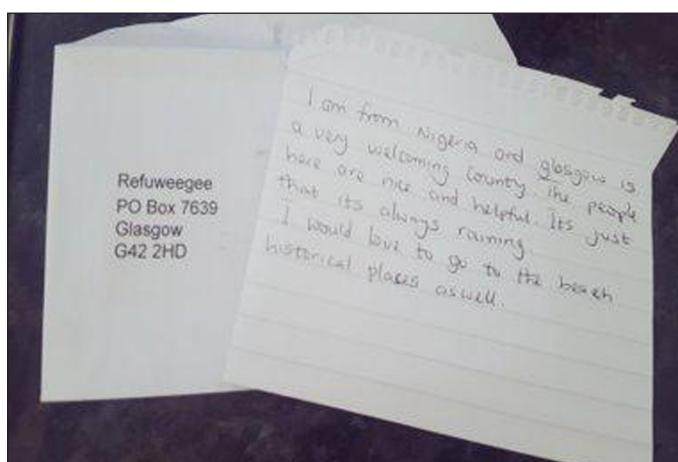 Refuweegee
PO Box 7639
Glasgow
G42 2HD
I am from Nigeria and glasgow is
a very welcoming county. The people
here are nice and helpful. Its just
that its always raining.
I would love to go to the beach
historical places aswell.